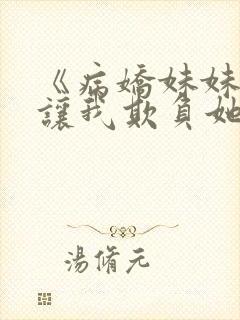 《病嬌妹妹
讓我欺負她
湯脩元